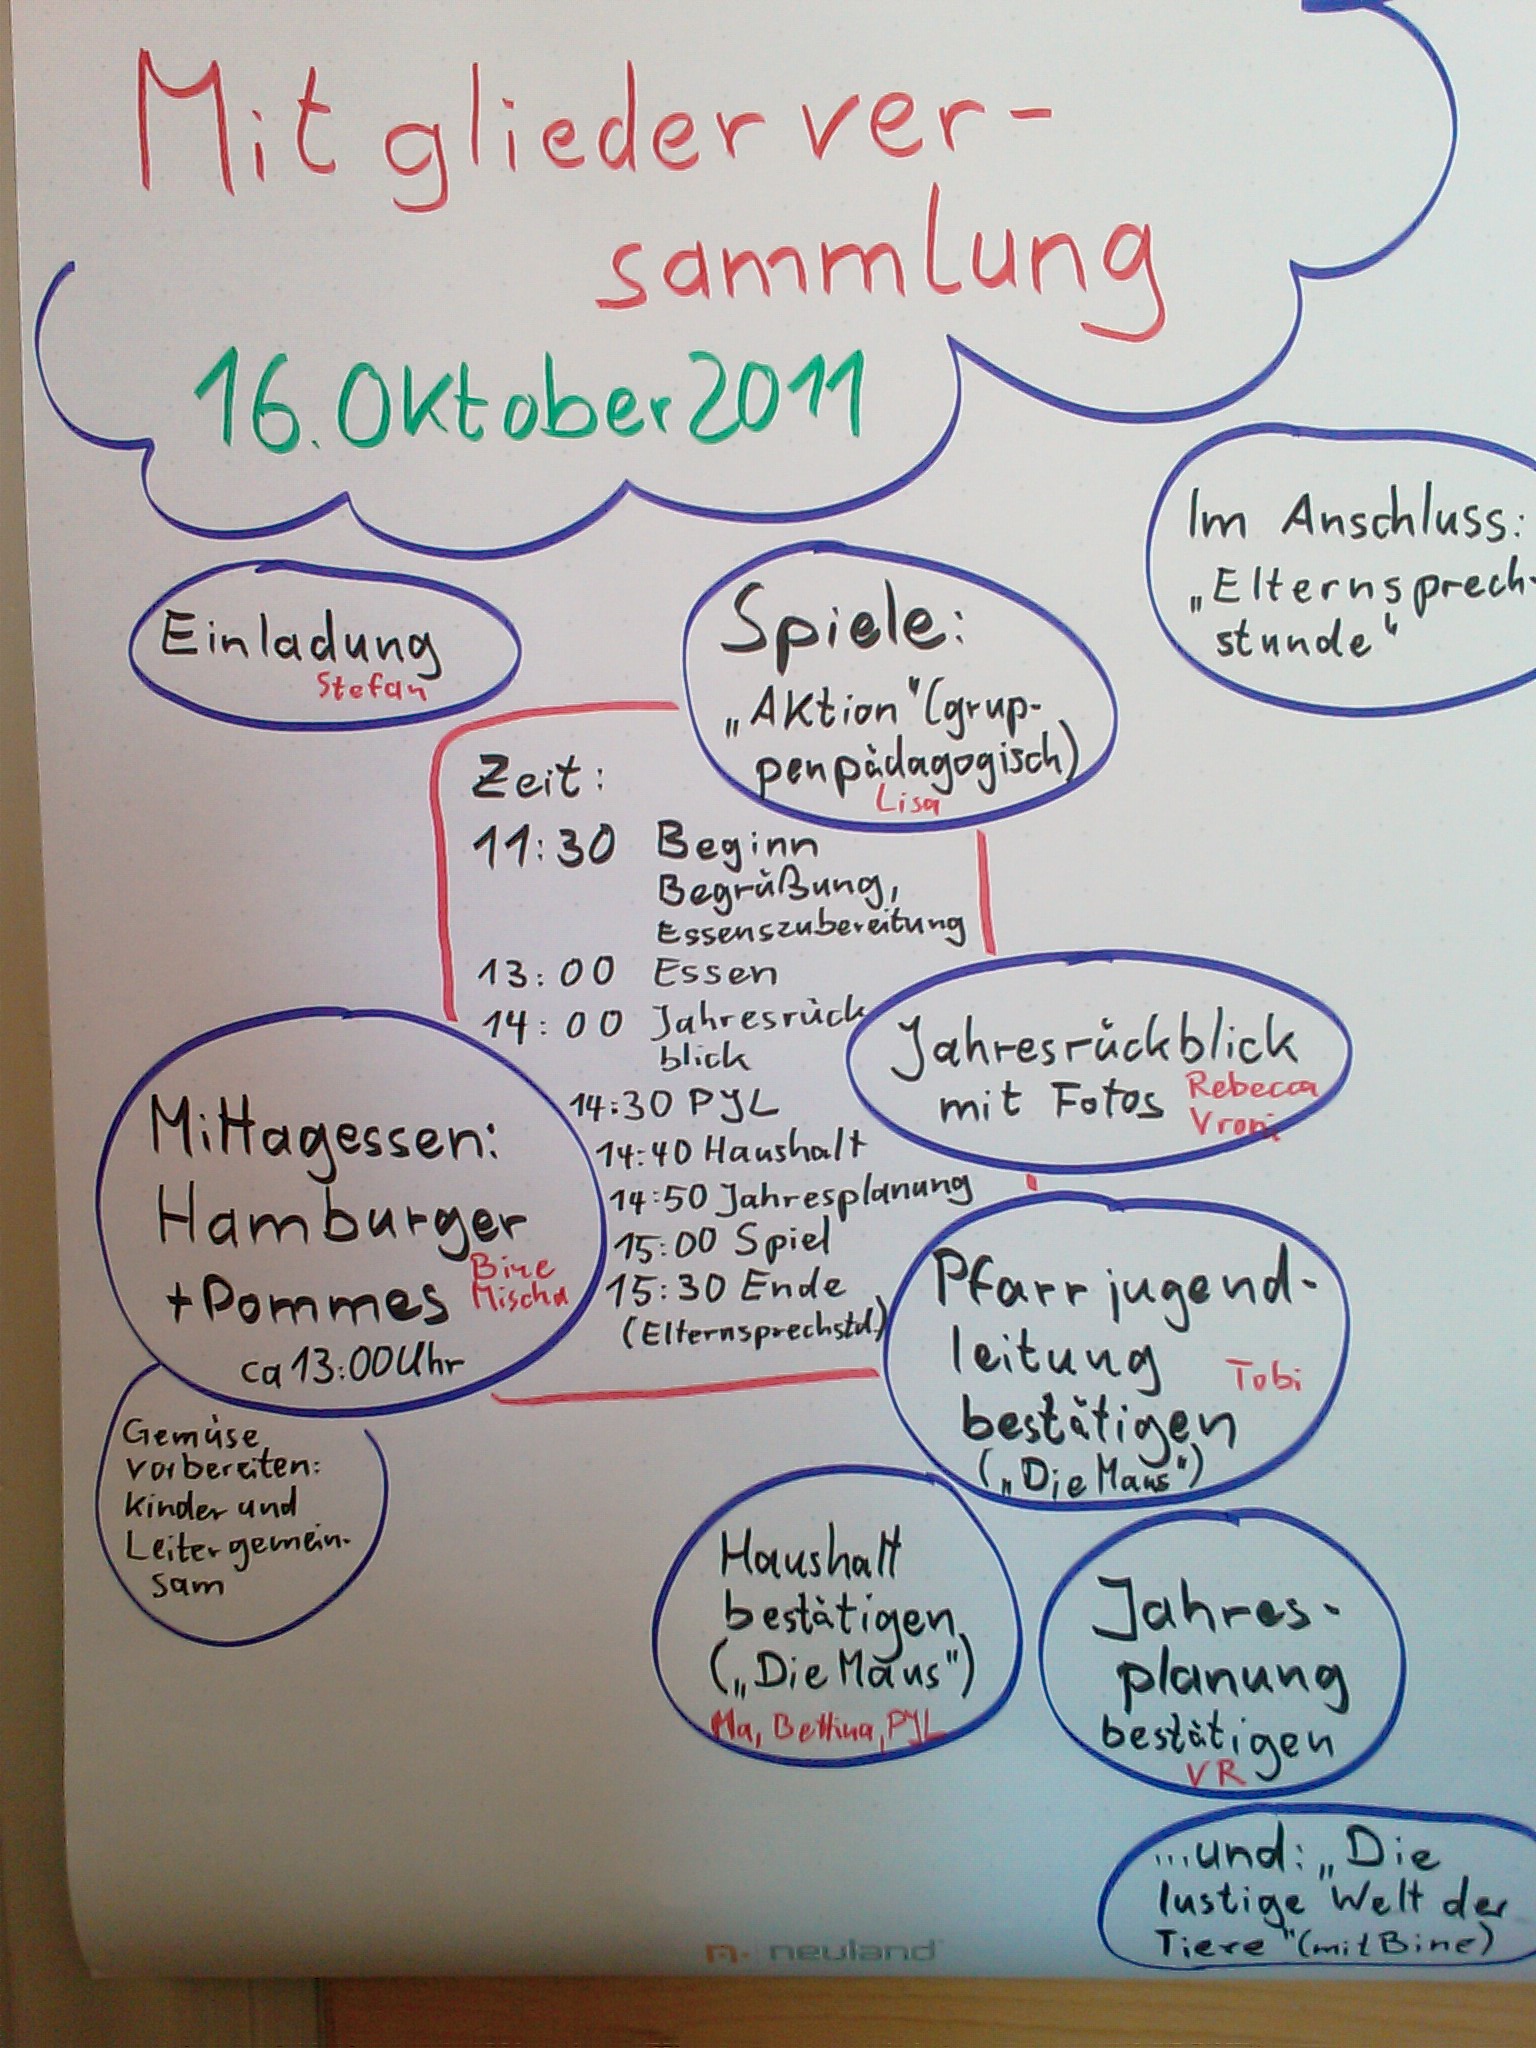 Mitgliederver-
sammlung
16. Oktober 2011
Im Anschluss:
„Elternsprech-
stunde"
Einladung
Stefan
Spiele:
„Aktion" (grup-
penpädagogisch)
Lisa
Zeit:
11:30 Beginn
Begrüßung,
Essenszubereitung
13:00 Essen
14:00 Jahresrück
blick
14:30 PJL
14:40 Haushalt
14:50 Jahresplanung
15:00 Spiel
15:30 Ende
(Elternsprechstd.)
Jahresrückblick
mit Fotos
Rebecca
Vroni
Mittagessen:
Hamburger
+ Pommes
Bine
Mischa
ca 13:00 Uhr
Gemüse
vorbereiten:
Kinder und
Leiter gemein-
sam
Pfarrjugend-
leitung
Tobi
bestätigen
(„Die Maus")
Haushalt
bestätigen
(„Die Maus")
Ma, Bettina, PJL
Jahres-
planung
bestätigen
VR
...und: „Die
lustige Welt der
Tiere" (mit Bine)
neuland